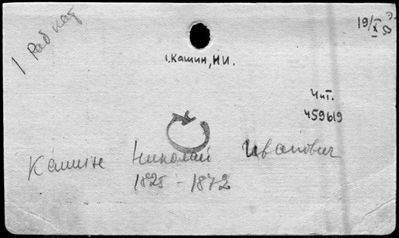 1 Раб кат
19/X 53
1. Кашин, Н И.
Чит.
459619
Кашин Николай Иванович
1825 - 1872